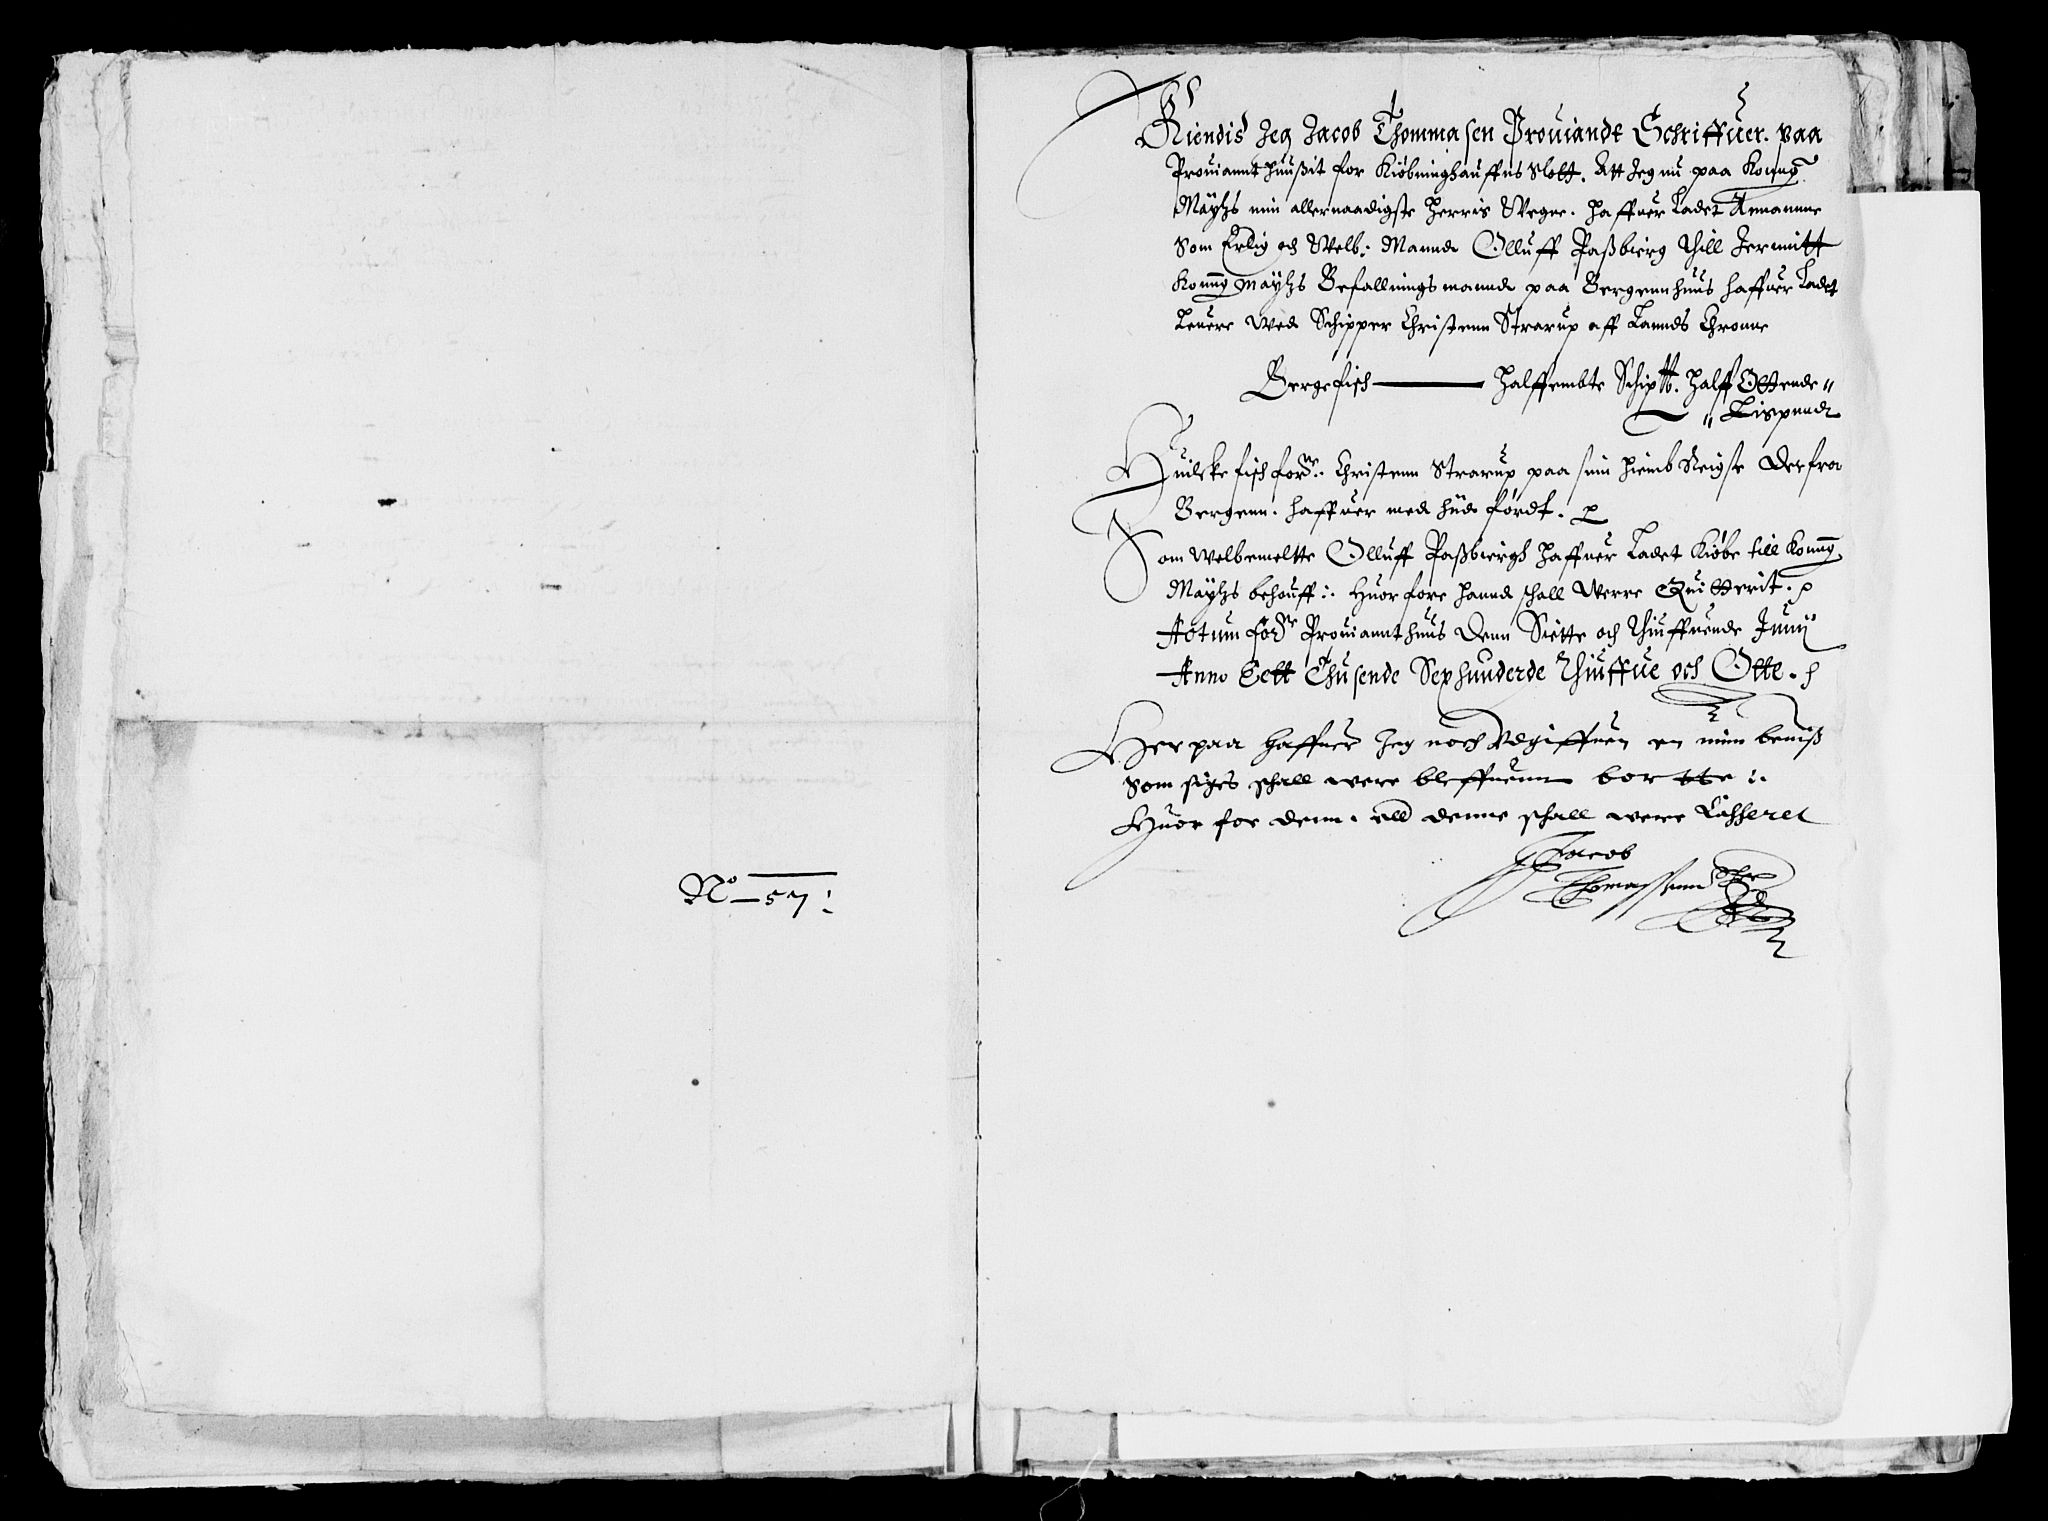 No 57:
Kiendis Jeg Jacob Thommasen Prouiande Schriffuer. paa
Prouiannt huußit for Kiøbninghauffns Slott. Att Jeg nu paa Konng
Mäytzs min allernaadigste Herris Wegne. Haffuer Ladet Annamme
Som Erlig och Welb: Mannd Olluff Paßbierg thill Jermitt
Konng Mäytzs Befallnings mannd paa Bergennhuus haffuer Ladet
Leuere Wed Schipper Christenn Strarup aff Lannds Chronne
Bergefisch — Halffembte Schip℔. Halff Ottende"
" Lispund
Huilcke fisch forne: Christenn Strarup paa sinn Hiemb Reigse Der fra
Bergenn. haffuer med hiid førdt.
Som Welbemeltte Olluff Paßbiergh Haffuer Ladet Kiøbe till Konng
Mäytzs behouff:. Huorfore Hannd schall Werre Quitterit.
Actum forne Prouiannt huus Denn Siette och thiuffuende Junij
Anno Eett Thusende Sexhunderde Thiuffue och Otte.
Her paa haffuer Jeg noch Vdgiffuen en min beuiß
Som siges schall were bleffuenn bortte:.
Huor for denn. all denne schall were Casseret
Jacob
Thomassenn